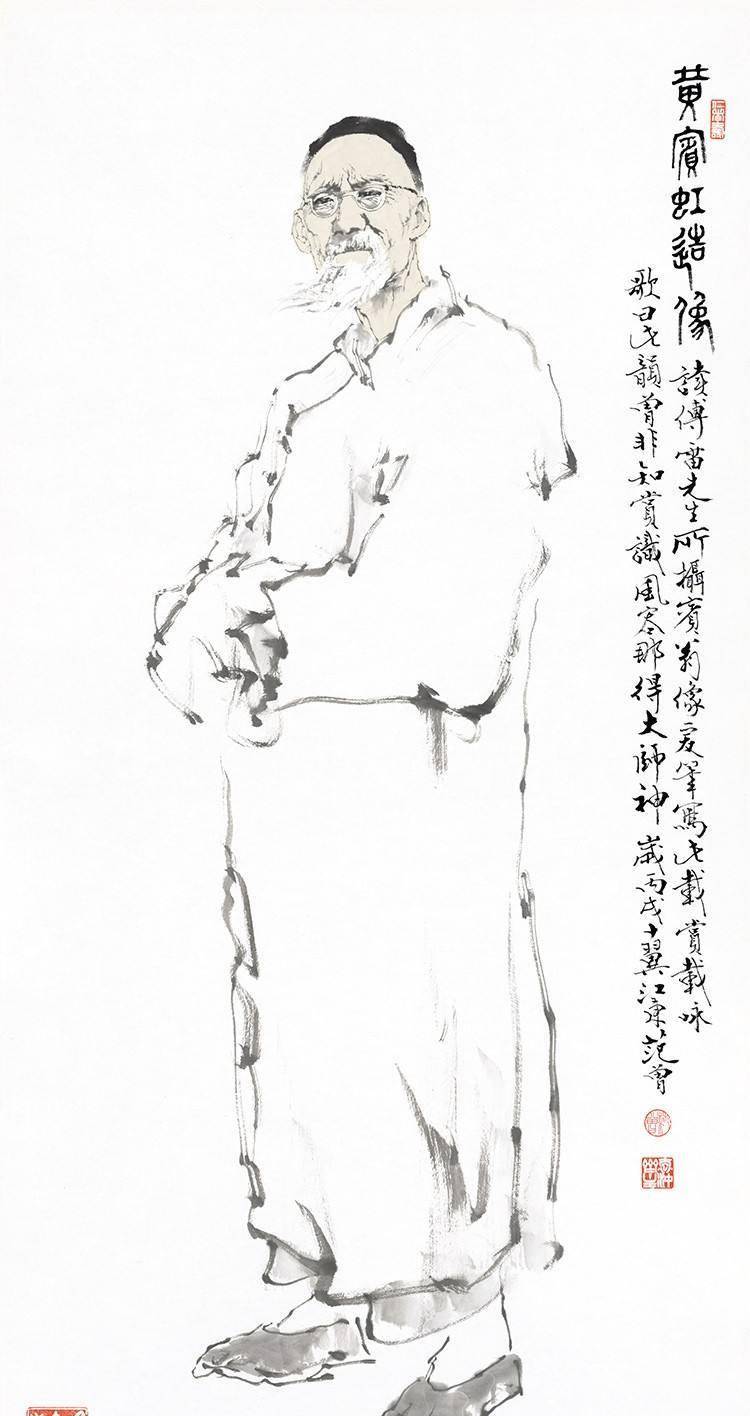 黄賓虹造像
讀傅雷先生所攝賓翁像爰筆寫此載賞載咏
歌曰此韻曾非知賞識風那得大師神歲丙戌十翼江東范曾